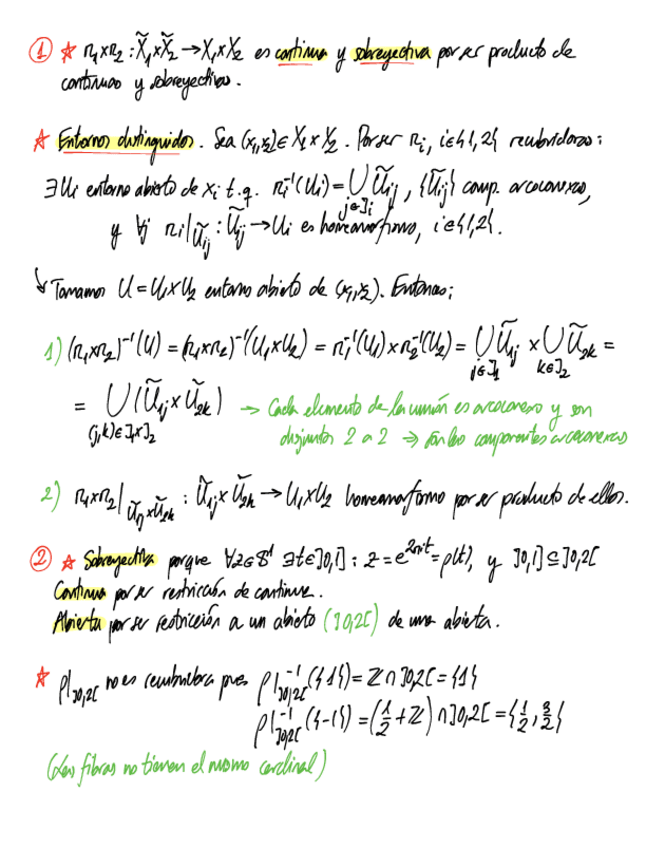 ① ☆ π₁×π₂ : X̃₁×X̃₂ → X₁×X₂ es continua y sobreyectiva por ser producto de
continuas y sobreyectivas.
☆ Entornos distinguidos. Sea (x₁,x₂)∈X₁×X₂. Por ser πᵢ, i∈{1,2} recubridoras:
∃Uᵢ entorno abierto de xᵢ t.q. πᵢ⁻¹(Uᵢ) = ⋃_{j∈Jᵢ} Ũᵢⱼ, {Ũᵢⱼ} comp. arcoconexas,
y ∀j πᵢ|_{Ũᵢⱼ} : Ũᵢⱼ → Uᵢ es homeomorfismo, i∈{1,2}.
↳ Tomamos U = U₁×U₂ entorno abierto de (x₁,x₂). Entonces:
1) (π₁×π₂)⁻¹(U) = (π₁×π₂)⁻¹(U₁×U₂) = π₁⁻¹(U₁)×π₂⁻¹(U₂) = ⋃_{j∈J₁} Ũ₁ⱼ × ⋃_{k∈J₂} Ũ₂ₖ =
= ⋃_{(j,k)∈J₁×J₂} (Ũ₁ⱼ×Ũ₂ₖ) → Cada elemento de la unión es arcoconexo y son
disjuntos 2 a 2 ⇒ son las componentes arcoconexas
2) π₁×π₂|_{Ũ₁ⱼ×Ũ₂ₖ} : Ũ₁ⱼ×Ũ₂ₖ → U₁×U₂ homeomorfismo por ser producto de ellos.
② ☆ Sobreyectiva porque ∀z∈S¹ ∃t∈]0,1] : z = e^{2πit} = ρ(t), y ]0,1]⊆]0,2[
Continua por ser restricción de continua.
Abierta por ser restricción a un abierto (]0,2[) de una abierta.
☆ ρ|_{]0,2[} no es recubridora pues ρ|_{]0,2[}⁻¹({1}) = ℤ∩]0,2[ = {1}
ρ|_{]0,2[}⁻¹({-1}) = (1/2+ℤ)∩]0,2[ = {1/2, 3/2}
(Las fibras no tienen el mismo cardinal)